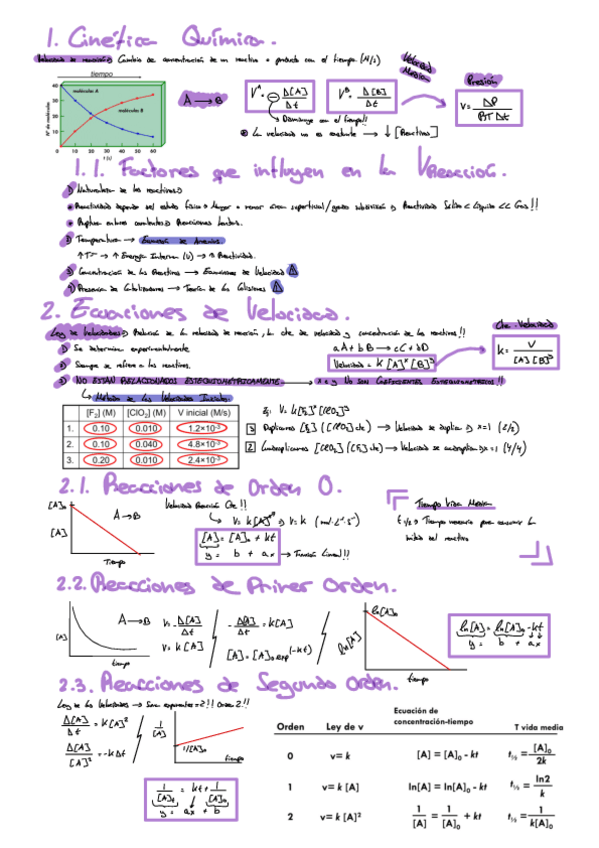 1. Cinética Química.
Velocidad de reacción: Cambio de concentración de un reactivo o producto con el tiempo (M/s)
Velocidad Media
Presión
tiempo
Nº de moléculas
40
30
20
10
0 10 20 30 40 50 60
t (s)
moléculas A
moléculas B
A → B
Vᴬ = - Δ[A] / Δt
Vᴮ = Δ[B] / Δt
V = ΔP / RT Δt
Disminuye con el tiempo!!
La velocidad no es constante → ↓ [Reactivos]
1.1. Factores que influyen en la Vreacción.
1) Naturaleza de los reactivos
Reactividad depende del estado físico Mayor o menor área superficial/grado subdivisión Reactividad Sólido < Líquido << Gas!!
Ruptura enlaces covalentes Reacciones lentas.
2) Temperatura → Ecuación de Arrenius
↑Tª → ↑ Energía Interna (U) → ↑ Reactividad.
3) Concentración de los Reactivos → Ecuaciones de Velocidad
4) Presencia de Catalizadores → Teoría de las Colisiones
2. Ecuaciones de Velocidad.
Ley de Velocidades Relación de la velocidad de reacción, la cte de velocidad y concentración de los reactivos!!
Cte. Velocidad
1) Se determina experimentalmente.
aA + bB → cC + dD
2) Siempre se refiere a los reactivos.
Velocidad = k [A]ˣ [B]ʸ
k = V / [A]ˣ[B]ʸ
3) NO ESTÁN RELACIONADOS ESTEQUIOMÉTRICAMENTE → x e y NO SON COEFICIENTES ESTEQUIOMÉTRICOS!!
Método de las Velocidades Iniciales
[F₂] (M) [ClO₂] (M) V inicial (M/s)
1. 0.10 0.010 1.2×10⁻³
2. 0.10 0.040 4.8×10⁻³
3. 0.20 0.010 2.4×10⁻³
Ej: V = k[F₂]ˣ [ClO₂]ʸ
3 Duplicamos [F₂] ([ClO₂] cte) → Velocidad se duplica x=1 (2/2)
2 Cuadruplicamos [ClO₂] ([F₂] cte) → Velocidad se cuadruplica x=1 (4/4)
2.1. Reacciones de Orden 0.
[A]₀
[A]
Tiempo
A → B
Velocidad Reacción Cte!!
V = k[A]⁰ V = k (mol·L⁻¹·s⁻¹)
[A] = [A]₀ + kt
y = b + ax → Función Lineal!!
Tiempo Vida Media
t 1/2 Tiempo necesario para consumir la mitad del reactivo
2.2. Reacciones de Primer Orden.
[A]
tiempo
A → B
V = - Δ[A] / Δt
V = k[A]
- Δ[A] / Δt = k[A]
[A] = [A]₀ exp(-kt)
ln[A]₀
ln[A]
tiempo
ln[A] = ln[A]₀ - kt
y = b + ax
2.3. Reacciones de Segundo Orden.
Ley de las Velocidades → Suma exponentes = 2!! Orden 2!!
Δ[A] / Δt = k[A]²
Δ[A] / [A]² = -kΔt
1/[A]
1/[A]₀
tiempo
1/[A]ₜ = kt + 1/[A]₀
y = ax + b
Orden Ley de v Ecuación de concentración-tiempo T vida media
0 v= k [A] = [A]₀ - kt t½ = [A]₀ / 2k
1 v= k [A] ln[A] = ln[A]₀ - kt t½ = ln2 / k
2 v= k [A]² 1/[A] = 1/[A]₀ + kt t½ = 1 / k[A]₀